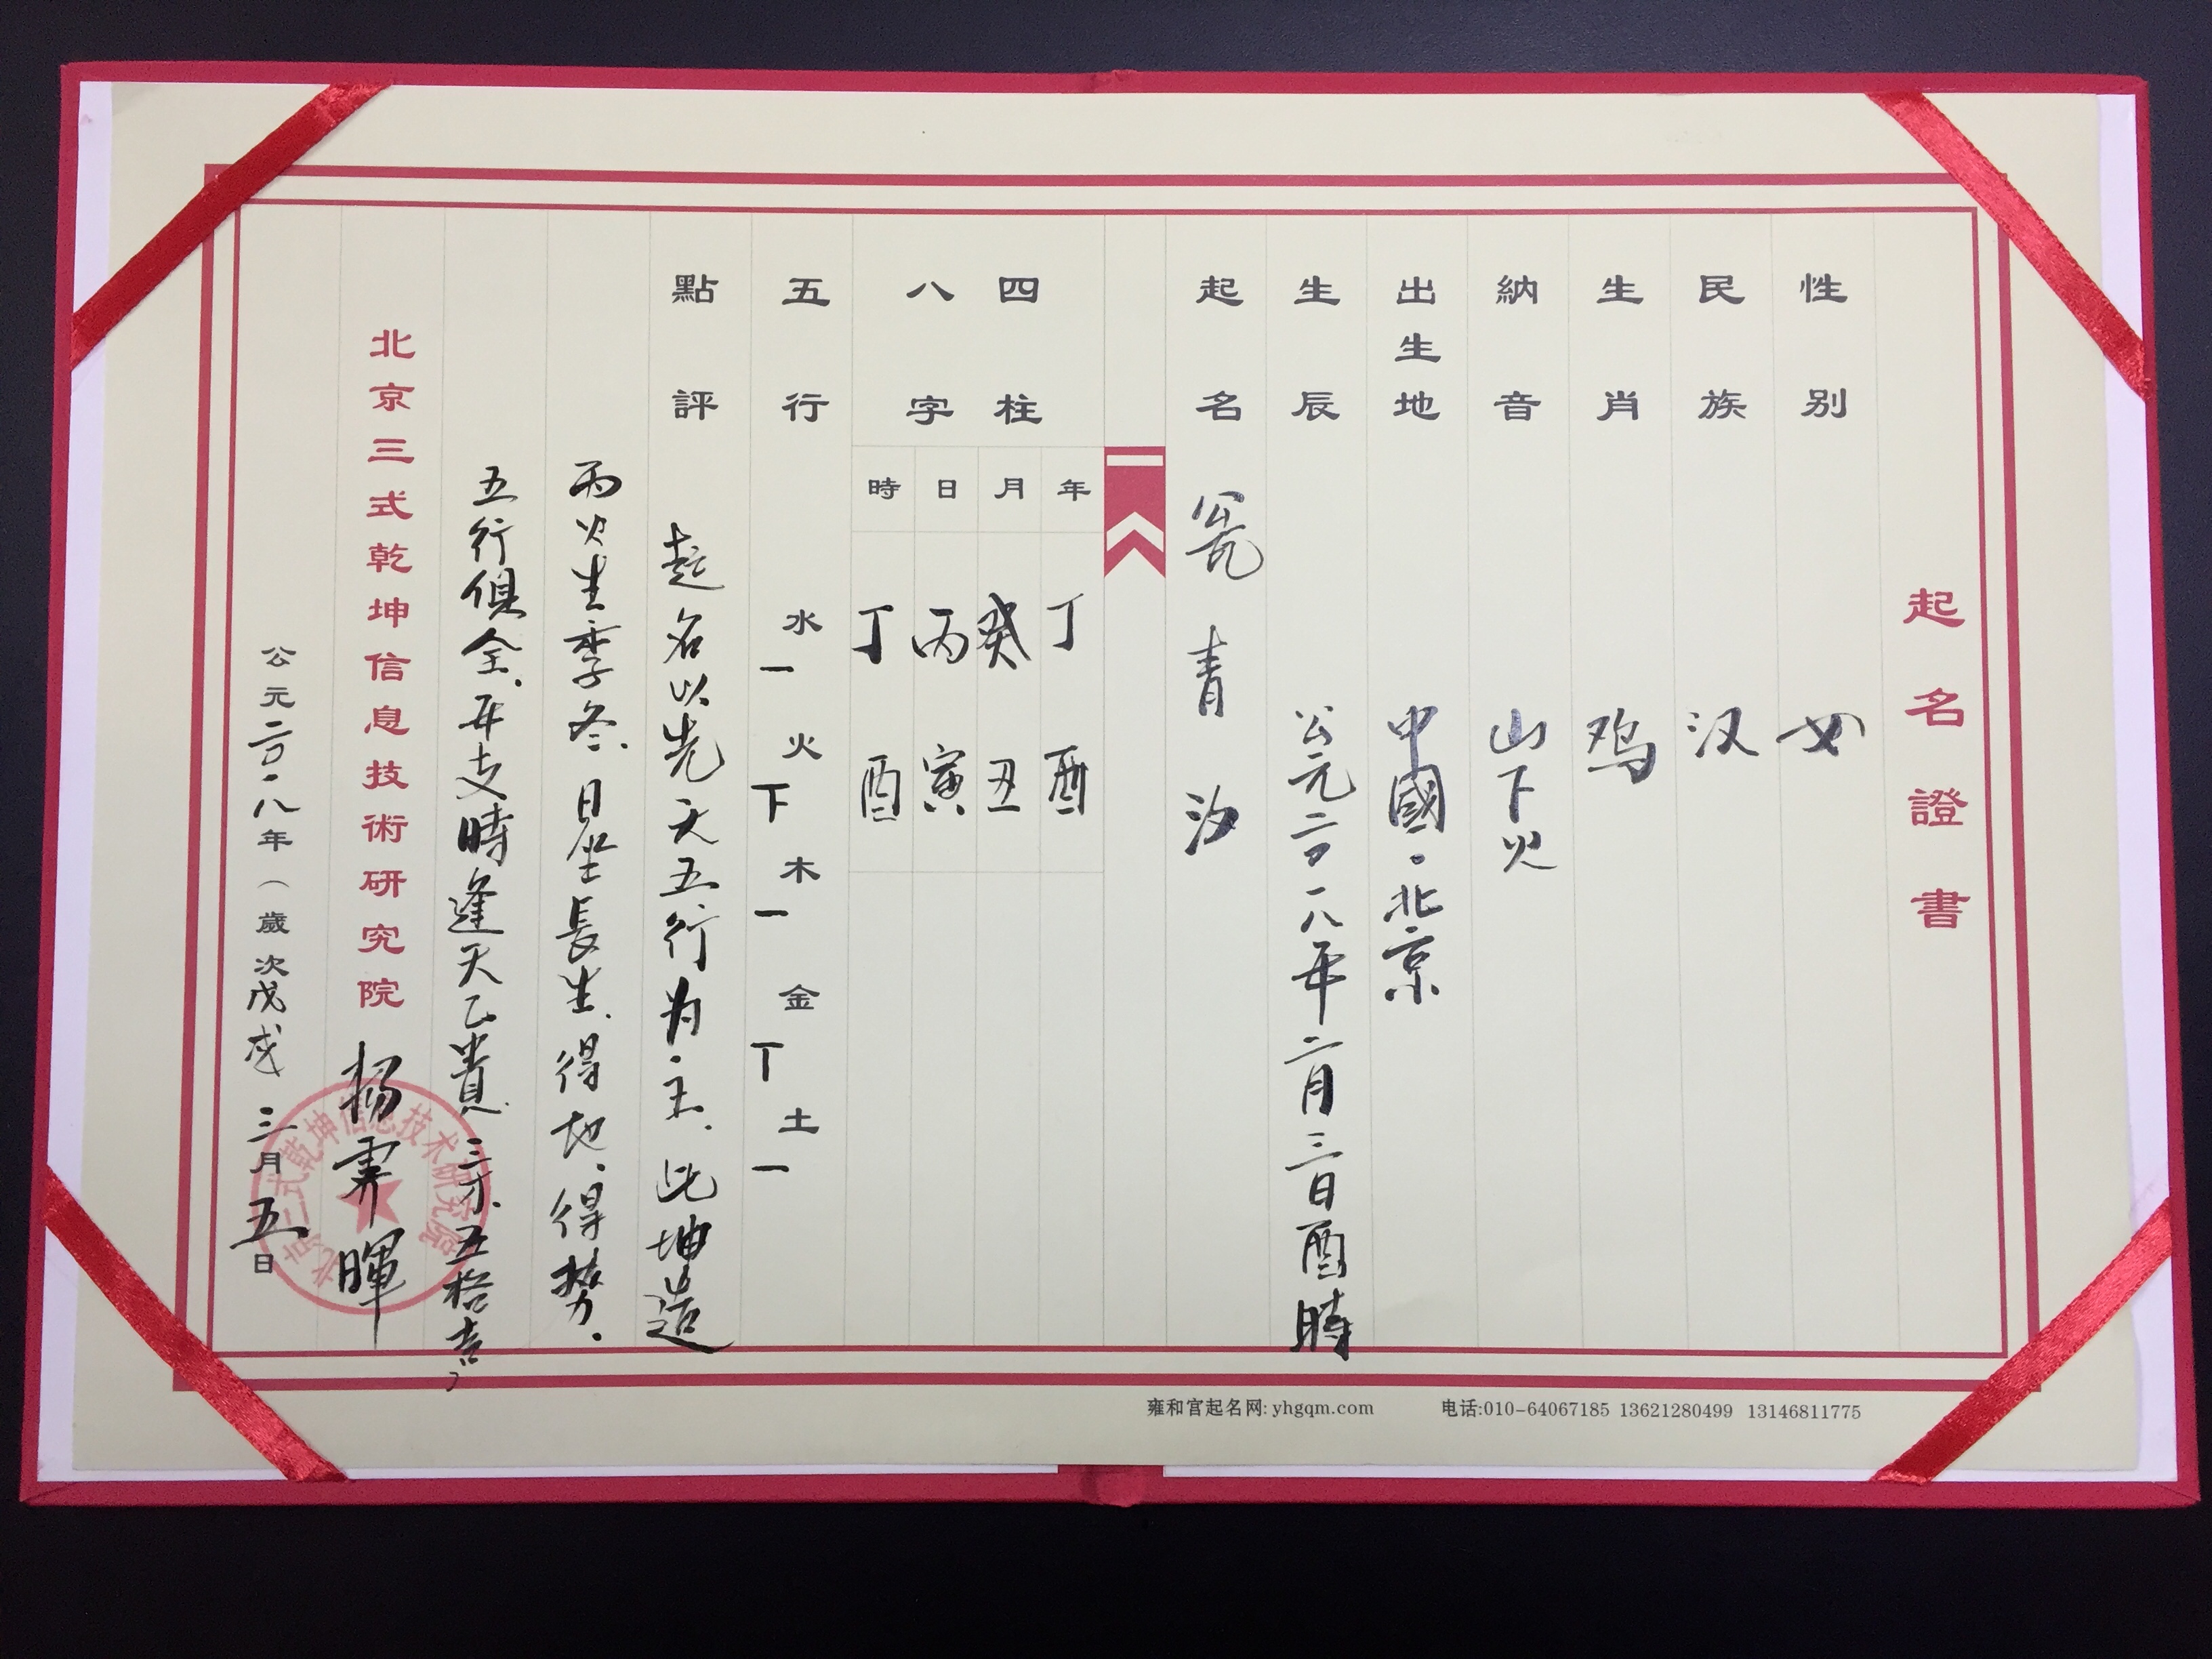 起名證書
性别 女
民族 汉
生肖 鸡
納音 山下火
出生地 中國·北京
生辰 公元二〇一八年二月三日酉時
起名 青汐
四柱八字
年 丁酉
月 癸丑
日 丙寅
時 丁酉
五行 水一 火丅 木一 金丅 土一
點評 起名以先天五行为主、此坤造
丙火生季冬、日坐長生、得地、得势.
五行俱全、年支時逢天乙貴、三才、五格吉、
北京三式乾坤信息技術研究院 杨霁暉
公元二〇一八年（歲次戊戌 三月五日
北京三式乾坤信息技术研究院
雍和宫起名网: yhgqm.com 电话:010-64067185 13621280499 13146811775